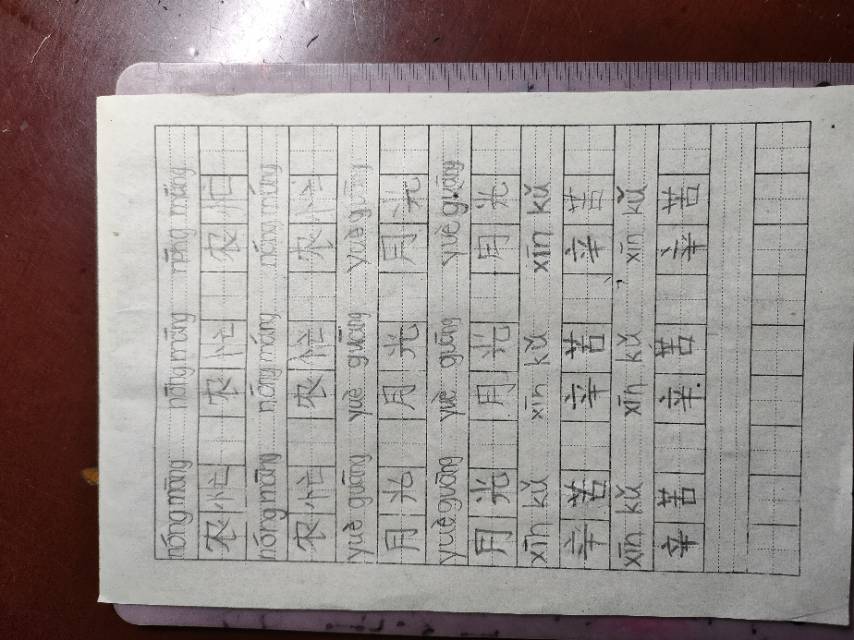 nóng máng nóng máng nóng máng
农忙 农忙 农忙
nóng máng nóng máng nóng máng
农忙 农忙 农忙
yuè guāng yuè guāng yuè guāng
月光 月光 月光
yuè guāng yuè guāng yuè guāng
月光 月光 月光
xīn kǔ xīn kǔ xīn kǔ
辛苦 辛苦 辛苦
xīn kǔ xīn kǔ xīn kǔ
辛苦 辛苦 辛苦